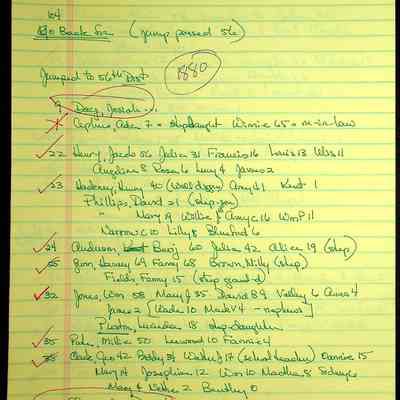 64
Go Back for (jump passed 56)
Jumped to 56th Dist
1880
9 Doey, Josiah
Ada 7 = stepdaught Winnie 65 = m-in-law
22 Henry, Jacob 56 Julia 31 Francis 16 Louis 13 Wis 11
Angeline 8 Rosa 6 Lucy 4 James 2
23 Hackney, Henry 40 (well digger) Amy 41 Kent 1
Phillips, David 21 (step-son)
" Mary 19 Willie Amy c 16 Wm P 11
10 Lilly 8 Blufird 6
24 Anderson, Benj 60 Julia 42 Allice 19 (step)
25 Ginn, Harvey 69 Fanny 68 Brown, Milly (step)
Fields, Fanny 15 (step grand-d)
32 Jones, Wm 58 Mary J 35 David 8 9 Valley 6 Anna 4
James 2 [Wade 10 Mark V 4 - nephews]
18 step-daughter
35 Millie 50 Leewood 10 Fannie 4
38 Clark, Geo 42 Betsy 37 Walter J 17 (school teacher) Dannie 15
Mary 14 Josephine 12 Wm 10 Madha 8 Sidney 6
Mary & Nettie 2 Bentley 0